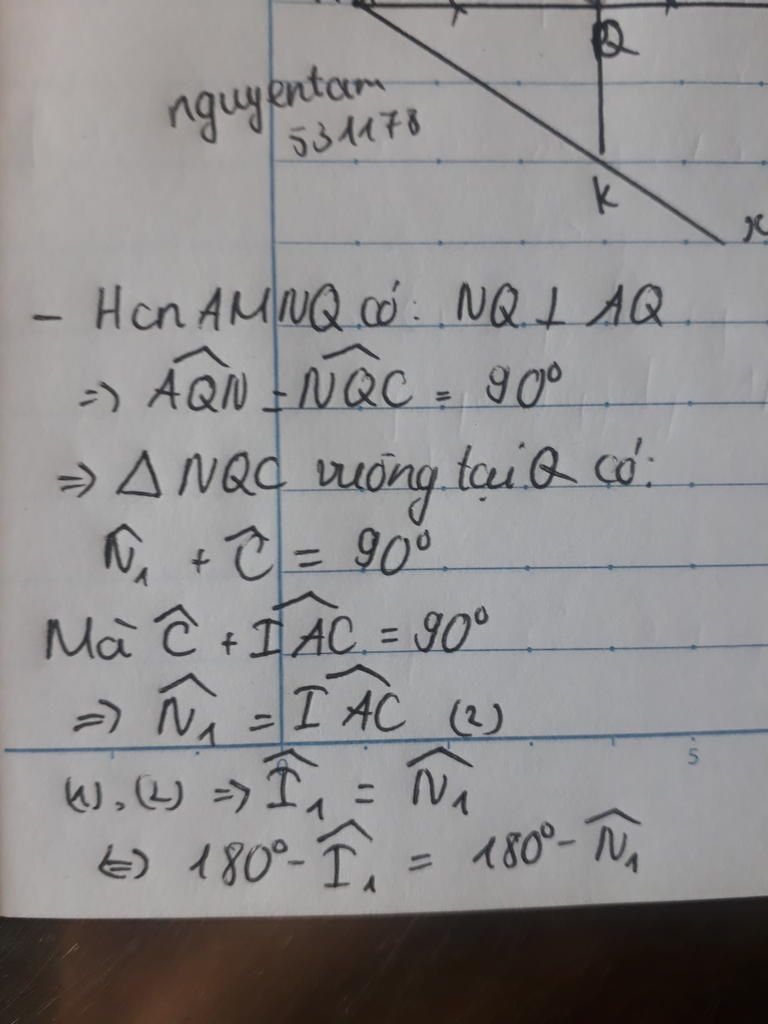 Q
nguyentam
531178
K
x
- Hcn AMNQ có: NQ ⊥ AQ
=> \widehat{AQN} = \widehat{NQC} = 90°
=> Δ NQC vuông tại Q có:
\widehat{N}₁ + \widehat{C} = 90°
Mà \widehat{C} + \widehat{IAC} = 90°
=> \widehat{N}₁ = \widehat{IAC} (2)
5
(1), (2) => \widehat{I}₁ = \widehat{N}₁
<=> 180° - \widehat{I}₁ = 180° - \widehat{N}₁